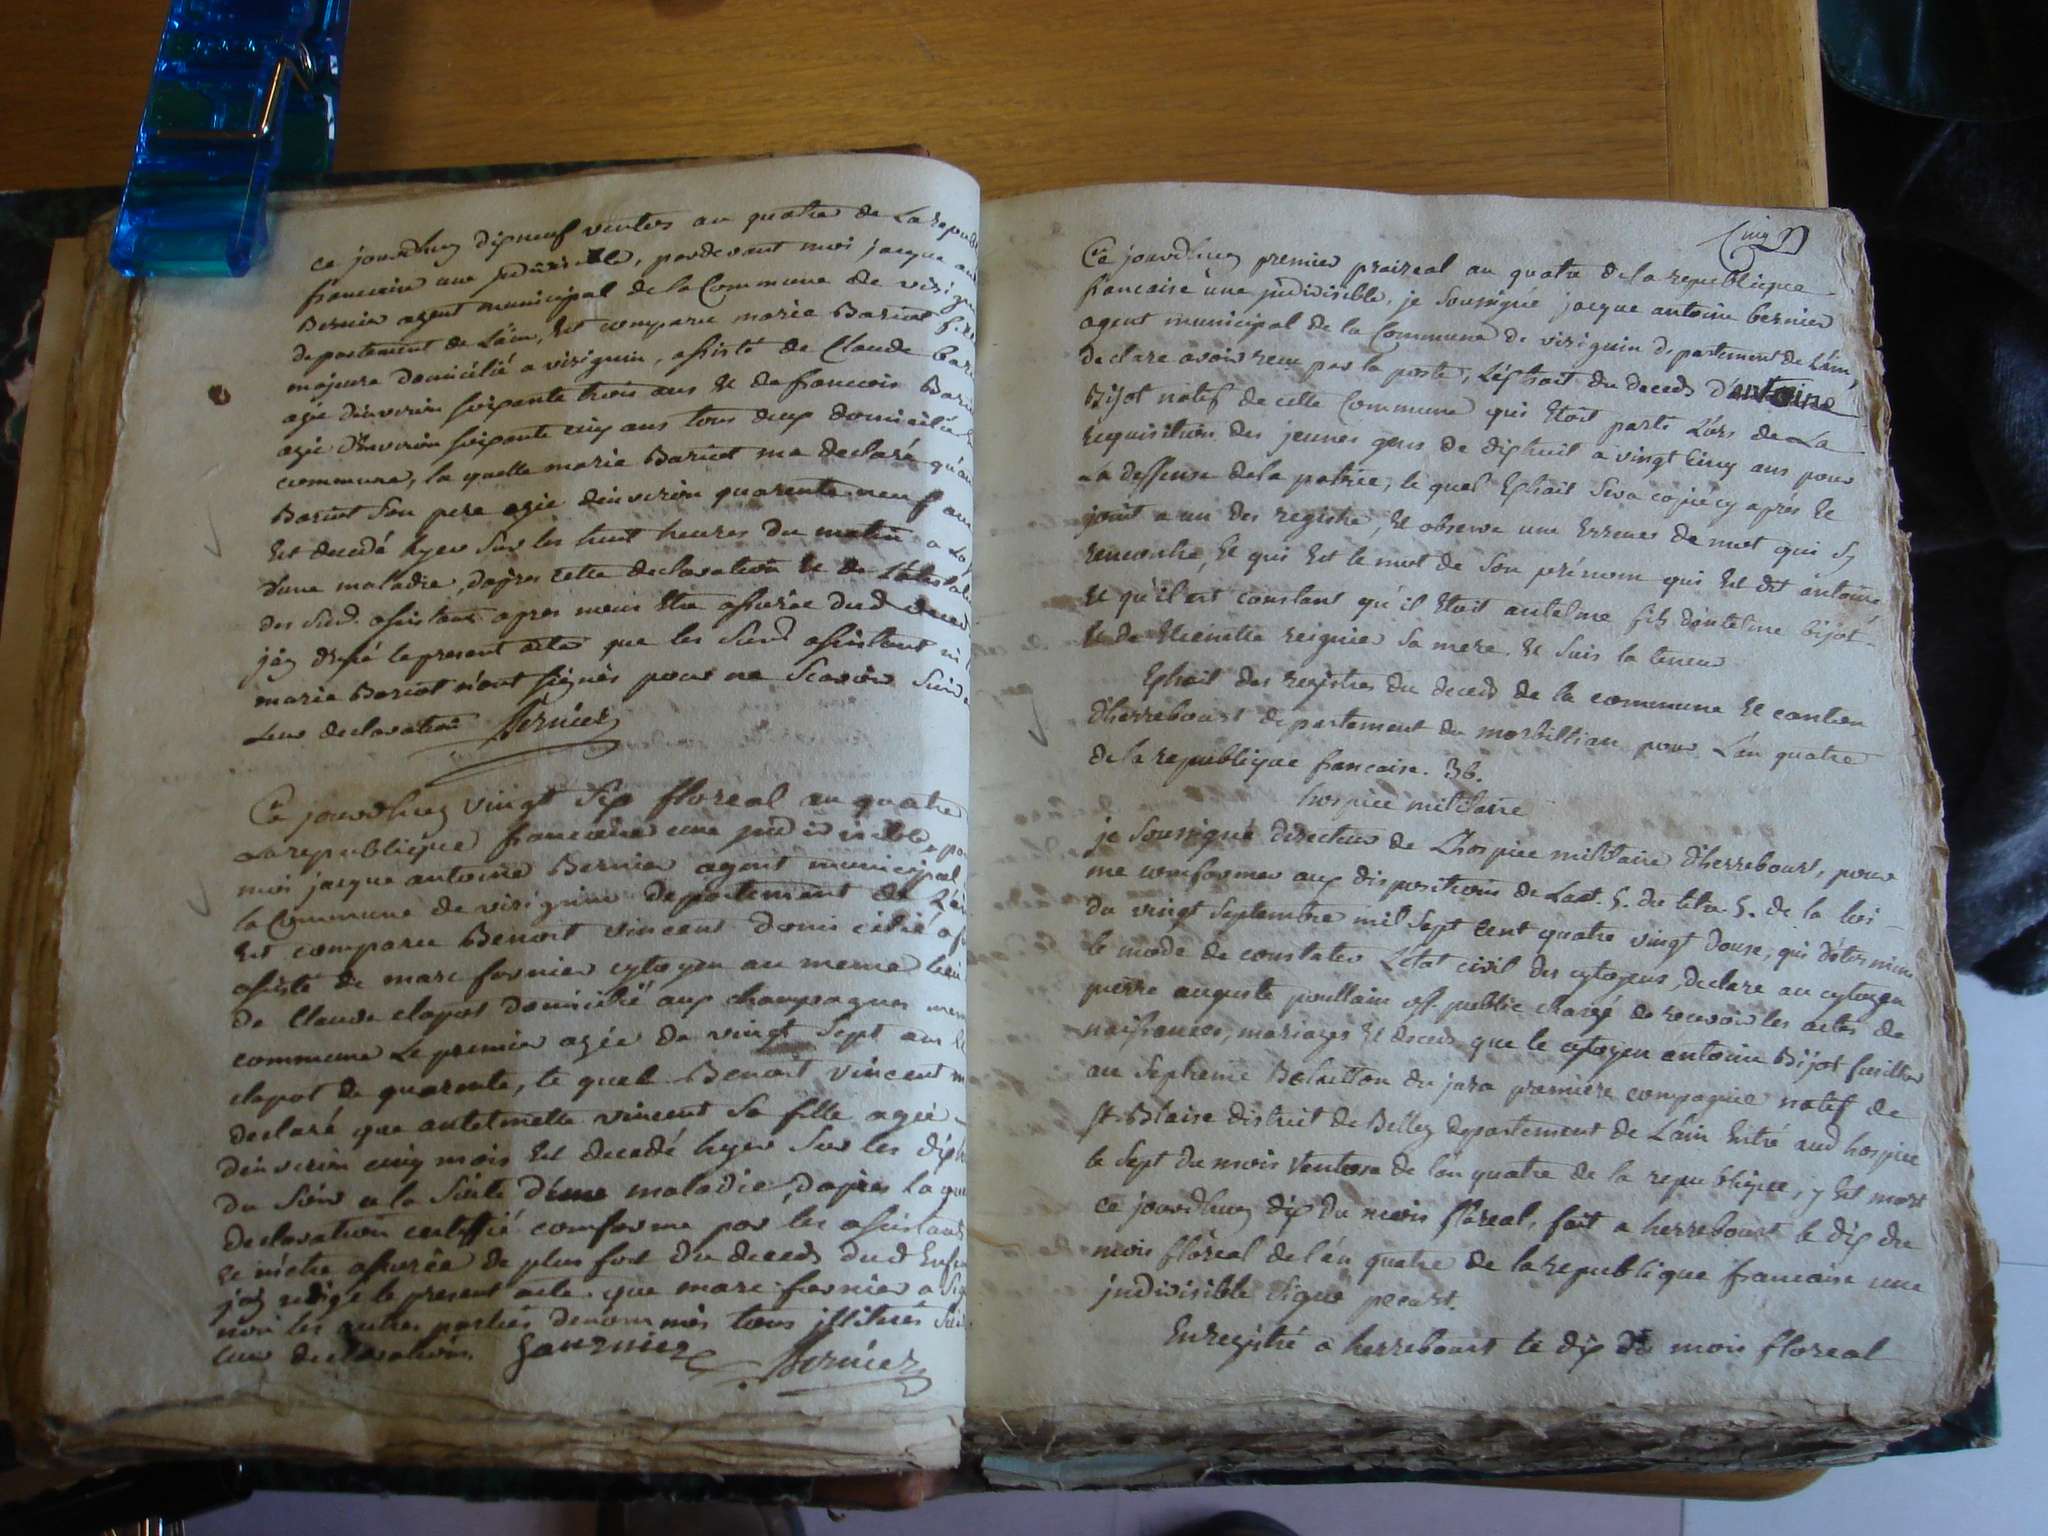 ce jourdhuy dixneuf ventos an quatre de La repub
francaise une indivisible, pardevant moi jacque an
Bernier agent municipal de la Commune de virign
departement de L'ain, Est comparu marie Bariot
majeure domicilié a virignin, assisté de Claude bari
agé d'environ soixante trois ans Et de francois Bari
agé d'environ soixante cinq ans tous deux domicilié
commune, la quelle marie Bariot ma declaré qu
Bariot son pere agé d'environ quarente neuf an
Est decedé hyer sur les huit heures du matin a La
d'une maladie, dapres cette declaration Et de
des susd. assistans apres mois Etre assurée dud deced
jáy dressé le present acte que les susd assistant ni
marie Bariot n'ont signés pour ne Scavoir Suiv
Leur declaration Bernier
Ce jourdhuy vingt Six floreal an quatre
La republique francaise une indivisible, par
moi jacque antoine Bernier agent municipal
la Commune de virignin departement de L'ai
Est comparu Benoit vincent domicilié
assisté de marc fornier cytoyen au meme lieu
de Claude clapot domicilié aux champagnes mem
commune Le premier agée de vingt Sept ans Et
clapot de quarente, le quel Benoit vincent m
declaré que antelmette vincent Sa fille agée
d'environ cinq mois Est decedé hyer Sur les dix h
du Soir a la Suite d'une maladie, dapres La que
declaration certiffié comforme par les assistants
Et m'etre assurée de plus fort du deceds dud Enfan
jay redigé le present acte que marc fornier a Sig
non les autres parties denommés tous illitirés Sui
leur declaration. fournier Bernier
Cinq
Ce jourdhuy premier praireal an quatre de la republique
francaise une indivisible, je Soussigné jacque antoine bernier
agent municipal de la Commune de virignin departement de L'ain,
declare avoir reçu par la poste, L'extrait du deceds d'antoine
Bijot natif de cette Commune qui Etoit parti L'ors de La
requisition des jeunes gens de dixhuit a vingt Cinq ans pour
La deffense de la patrie, le quel Extrait Sera copié cy aprés Et
joint a un des registre, Et observe une Erreur de mot qui Sy
rencontre, Et qui Est le mot de Son prénom qui Est dit antoine
Et qu'il est constant qu'il Etoit antelme fils d'antelme bijot
Et de Etienette reignier Sa mere. Et Suis la teneur
Extrait des registres du deceds de la commune Et canton
d'herrebourt departement du morbillian pour L'an quatre
de la republique francaise. 36.
hospice militaire
je Soussigné directeur de L'hospice militaire d'herrebourt, pour
me comformer aux dispositions de L'art. 5. du titre 5. de la loi
du vingt Septembre mil Sept Cent quatre vingt douse, qui détermine
le mode de constater L'etat civil des cytoyens, declare au cytoyen
pierre auguste poullain of. public chargé de recevoir les actes de
naissances, mariages Et deceds que le cytoyen antoine Bijot fusillier
au Septieme Bataillon du jura premiere compagnie natif de
St. Blaise district de Belley departement de L'ain Entré aud hospice
le Sept du mois Ventose de l'an quatre de la republique, y Est mort
ce jourdhuy dix du mois floreal, fait a herrebourt le dix du
mois floreal de l'an quatre de la republique francaise une
indivisible Signé pecart.
Enregistré a herrebourt le dix du mois floreal